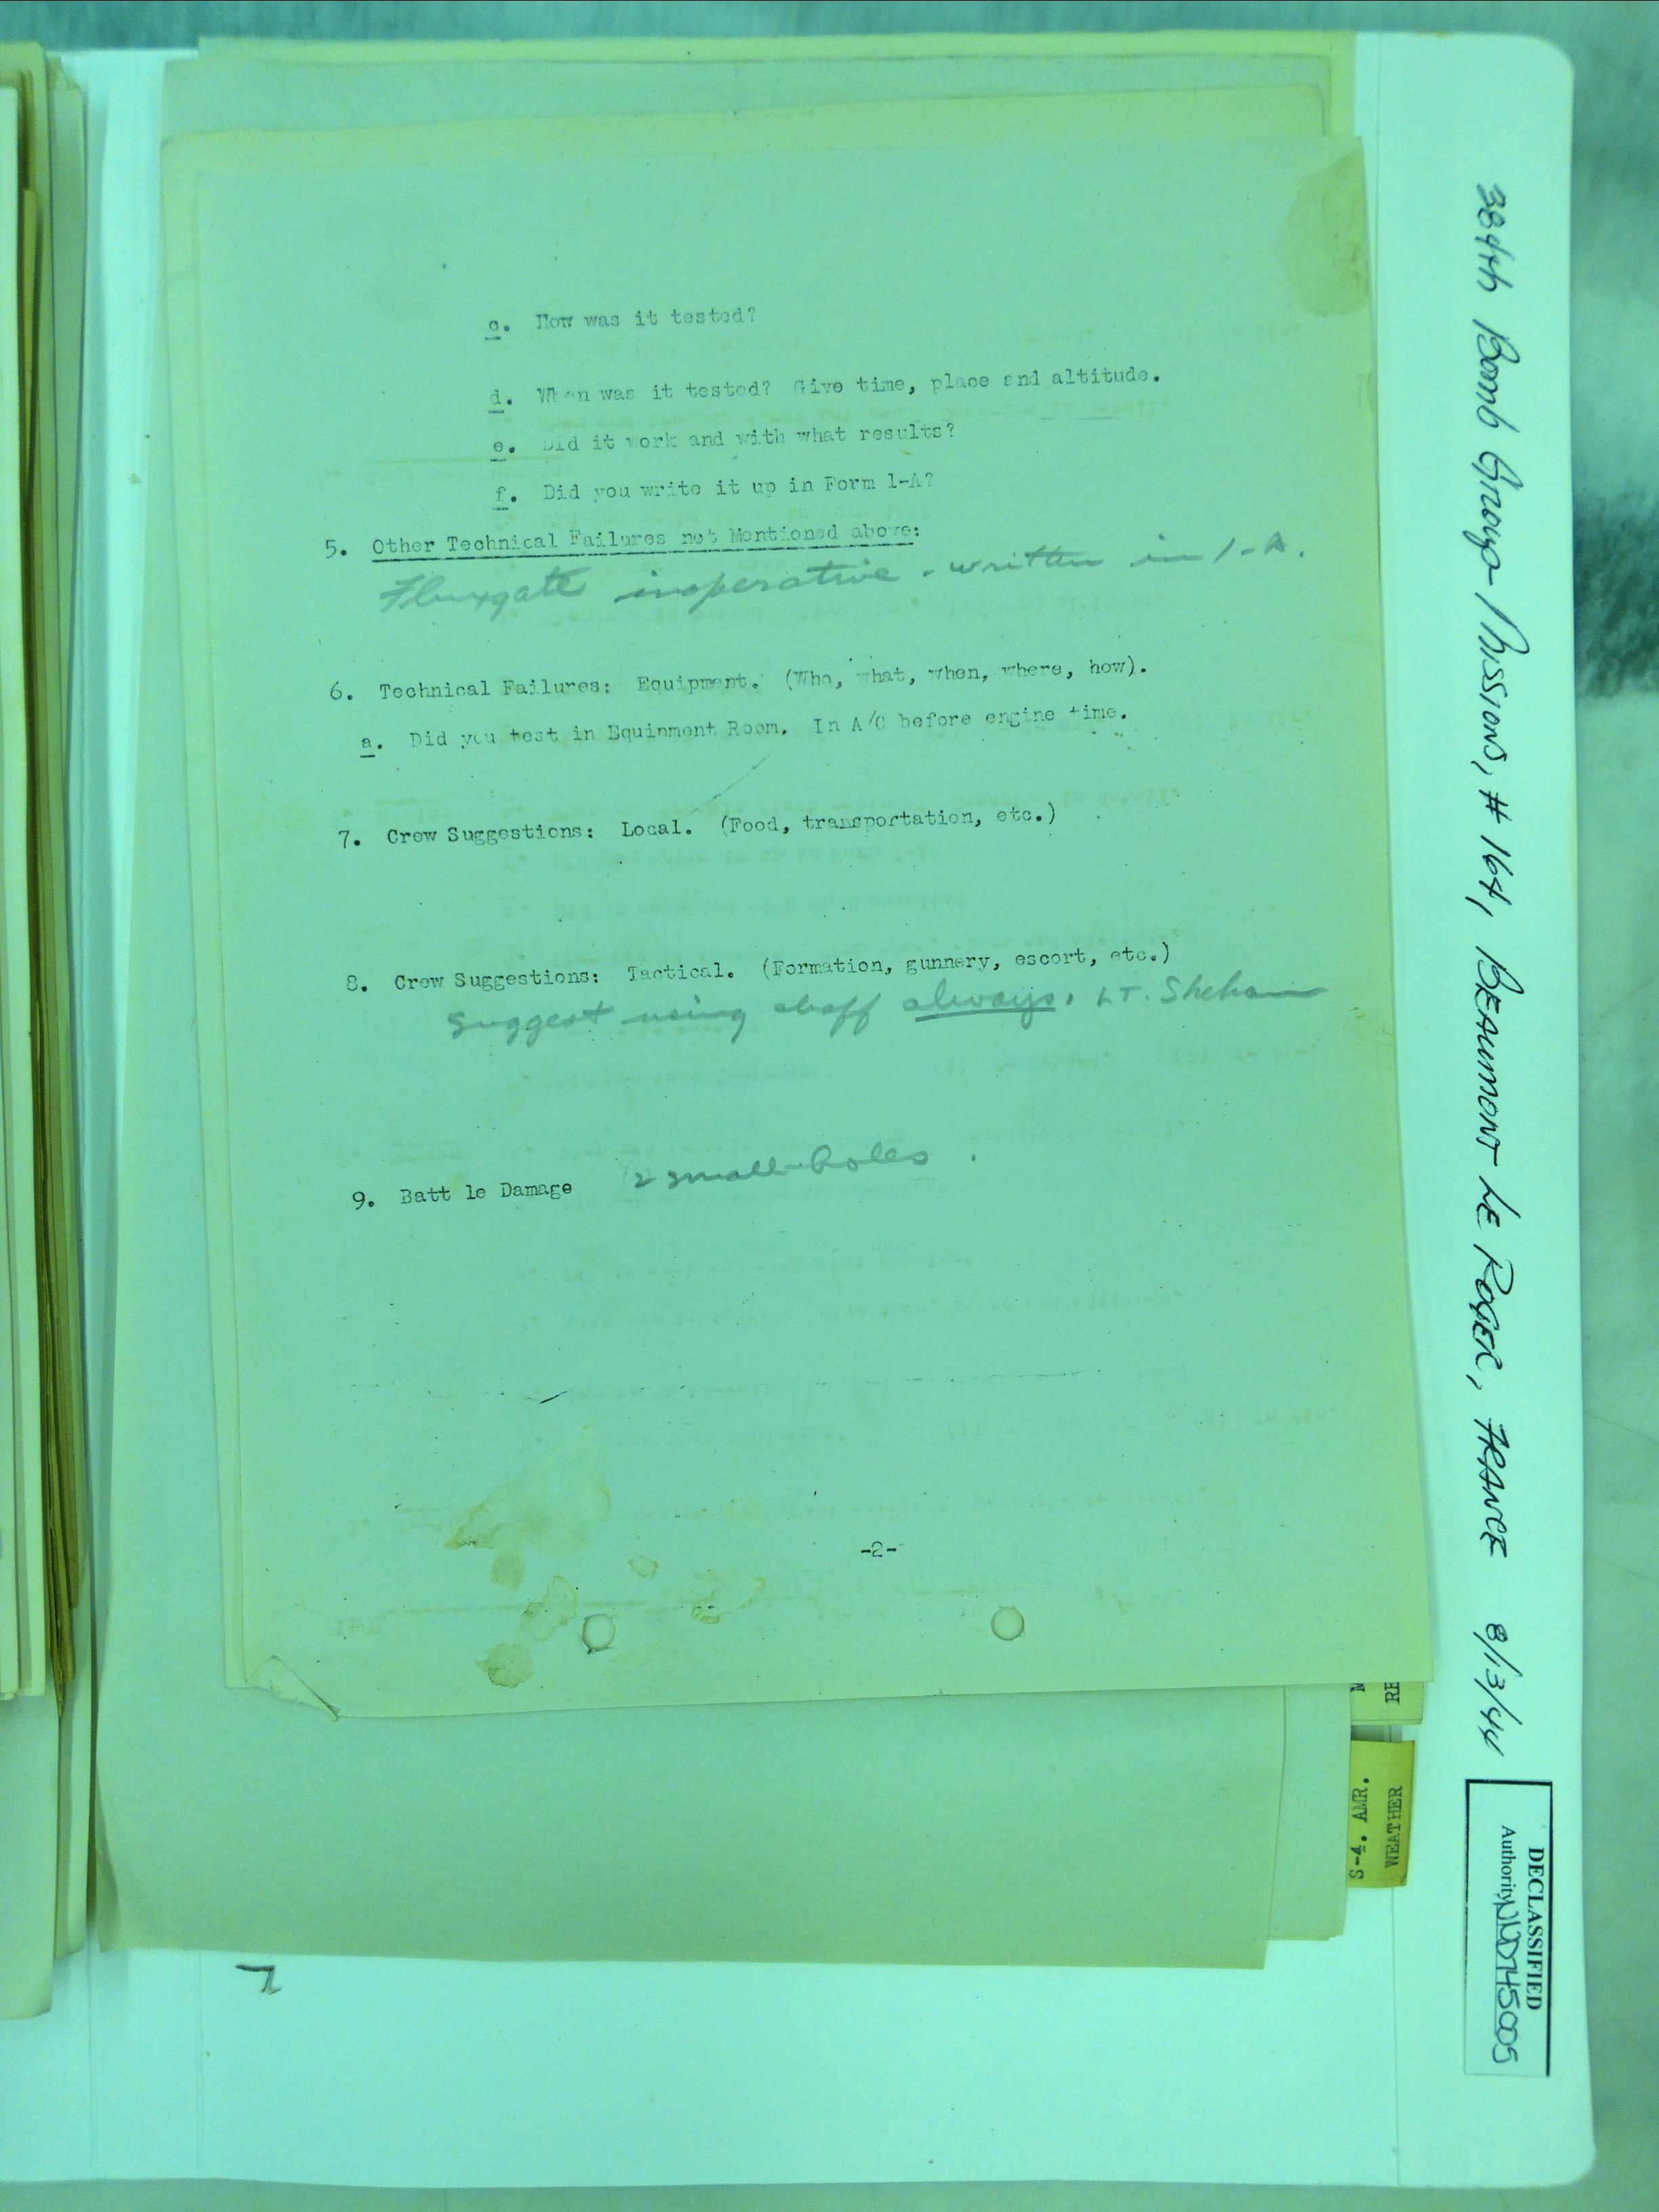 c. How was it tested?
d. When was it tested? Give time, place and altitude.
e. Did it work and with what results?
f. Did you write it up in Form 1-A?
5. Other Technical Failures not Mentioned above:
Fluxgate inoperative - written in 1-A.
6. Technical Failures: Equipment. (Who, what, when, where, how).
a. Did you test in Equipment Room. In A/C before engine time.
7. Crew Suggestions: Local. (Food, transportation, etc.)
8. Crew Suggestions: Tactical. (Formation, gunnery, escort, etc.)
Suggest using chaff always. LT.
9. Batt le Damage 2 small holes.
-2-
384th Bomb Group Missions, # 164, BEAUMONT LE ROGER, FRANCE 8/13/44
DECLASSIFIED
Authority NND745005
S-4. AMR.
WEATHER
RE
7